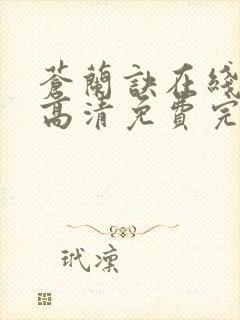 蒼蘭訣在綫
高清免費完
玳凜